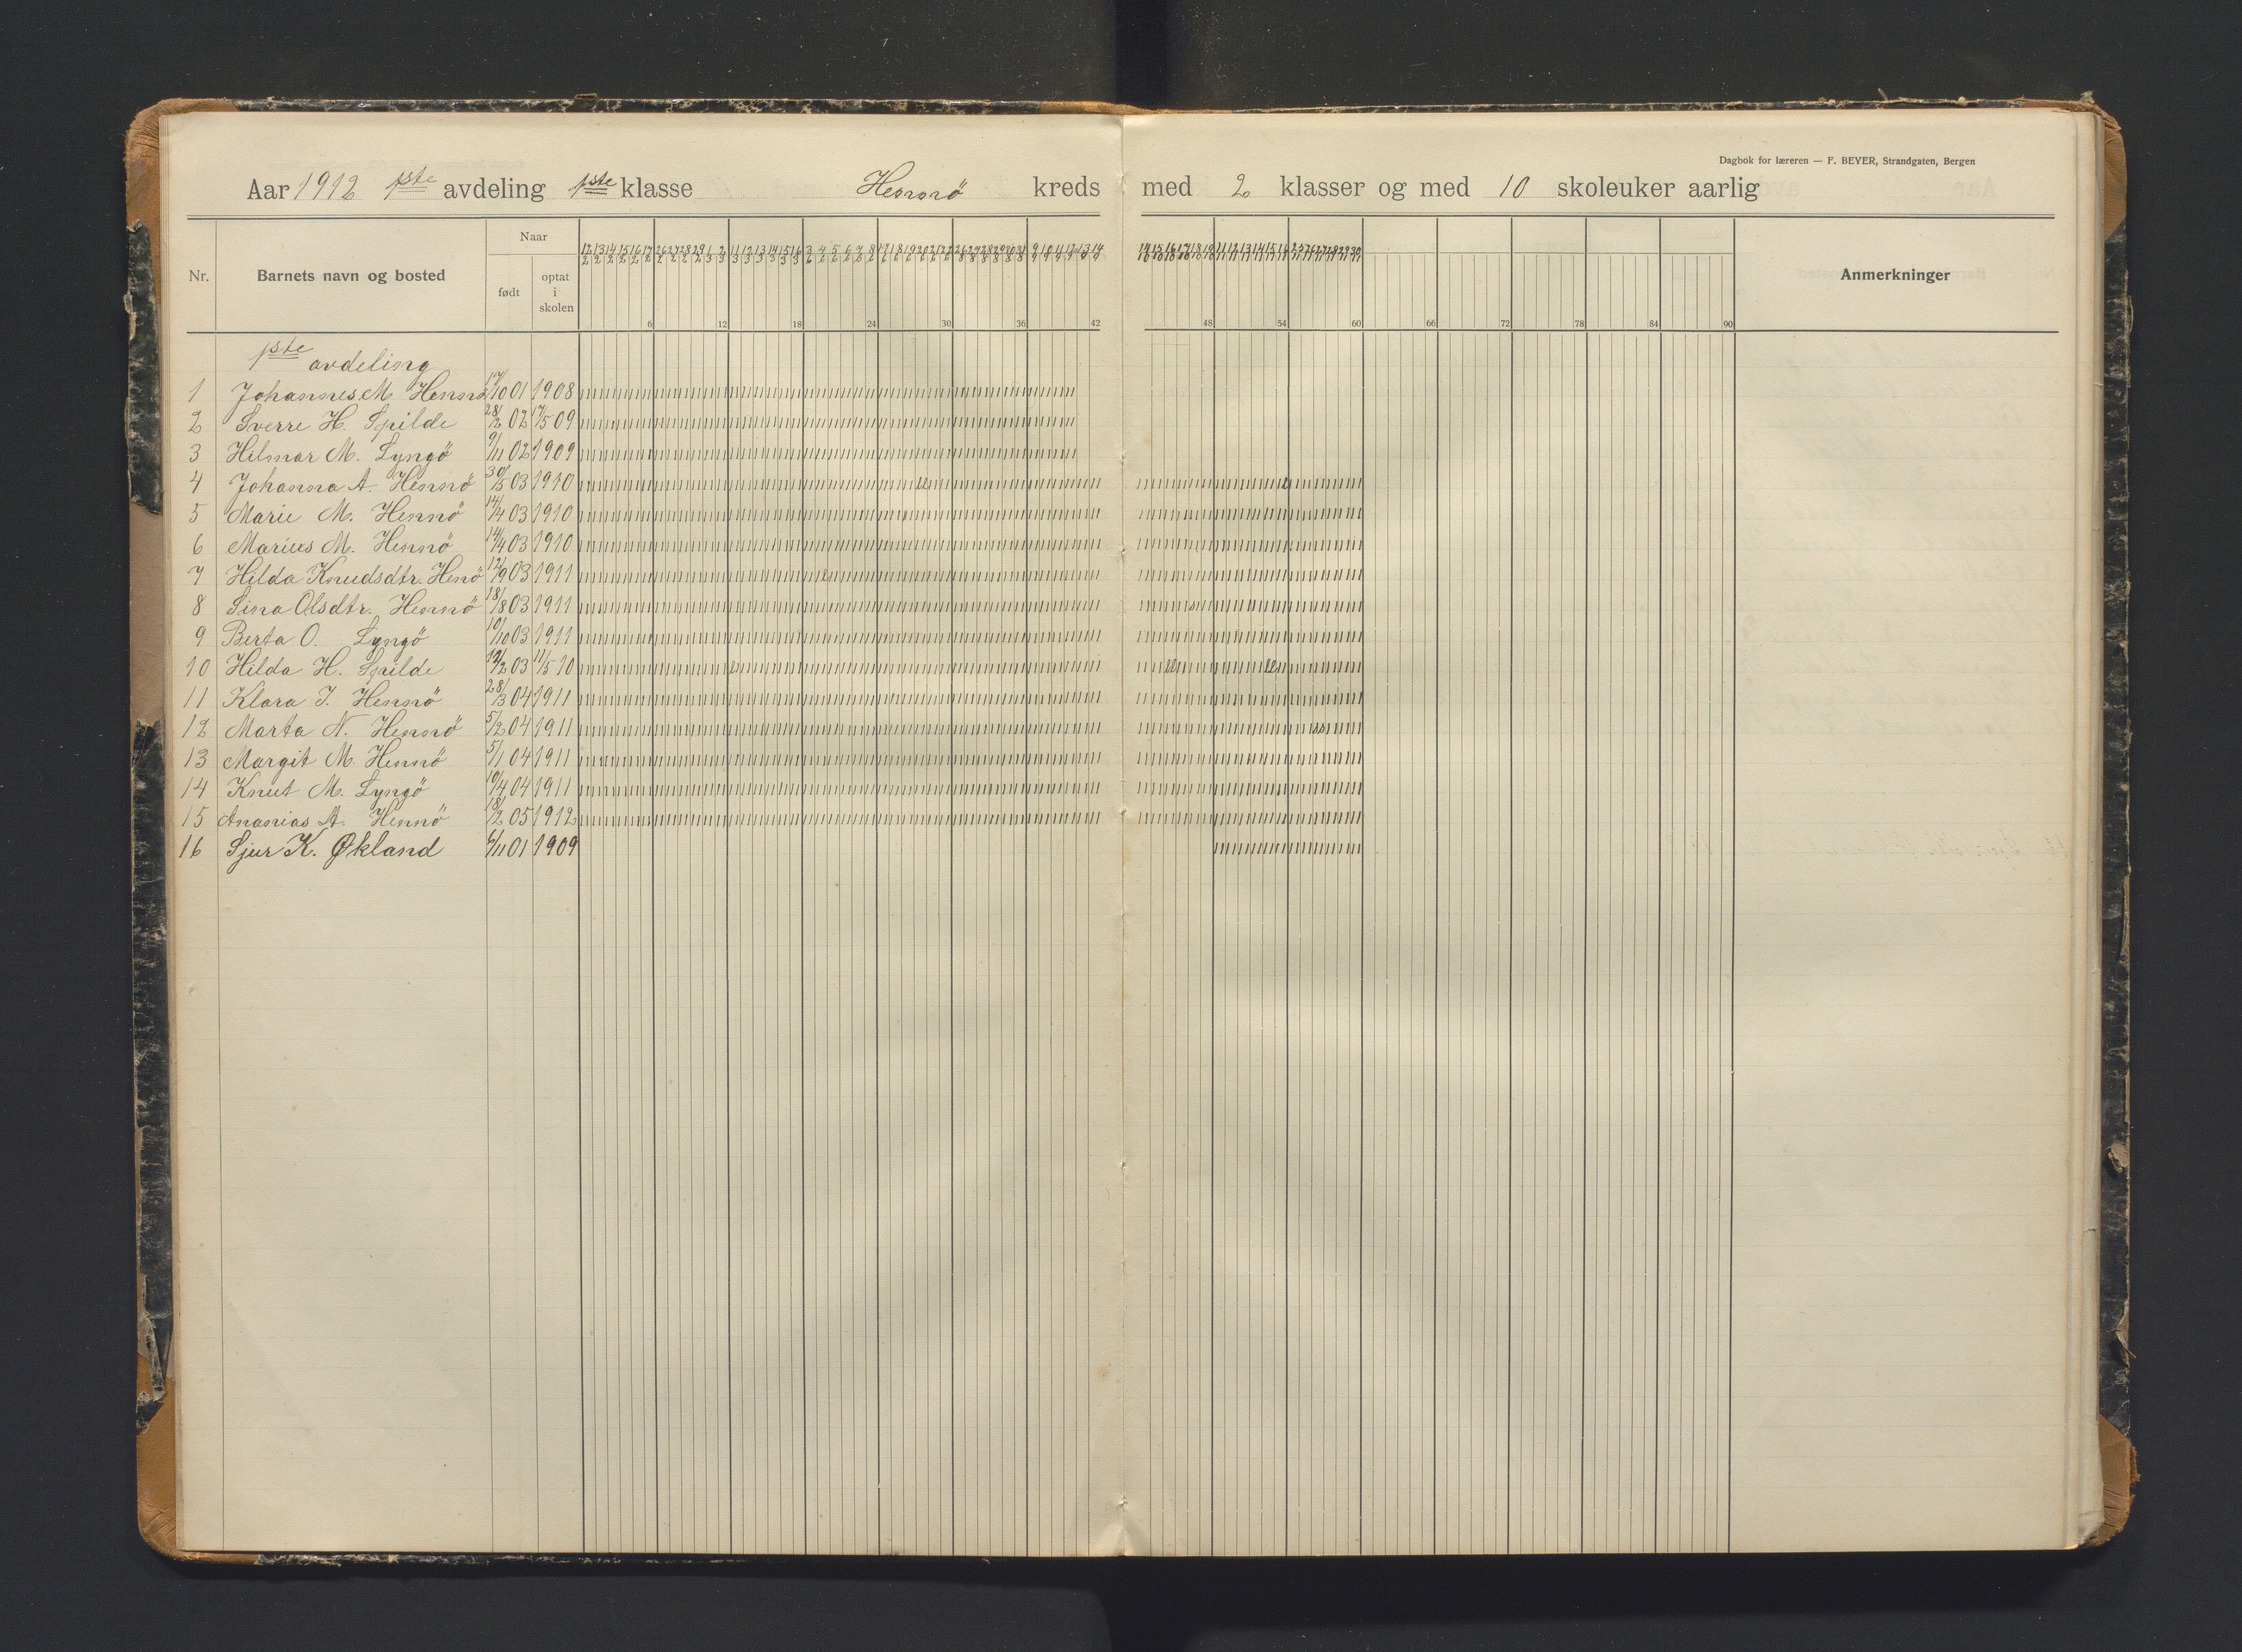 Dagbok for læreren — F. BEYER, Strandgaten, Bergen
Aar 1912 1ste avdeling 1ste klasse Hennö kreds med 2 klasser og med 10 skoleuker aarlig
Nr. Barnets navn og bosted Naar født optat i skolen Anmerkninger
6 12 18 24 30 36 42 48 54 60 66 72 78 84 90
1ste avdeling
1 Johannes M. Hennö 17/10 01 1908
2 Sverre H. Spilde 28/2 02 17/5 09
3 Hilmar M. Lyngö 9/11 02 1909
4 Johanna A. Hennö 30/5 03 1910
5 Marie M. Hennö 14/4 03 1910
6 Marius M. Hennö 14/4 03 1910
7 Hilda Knudsdtr. Henö 12/9 03 1911
8 Sina Olsdtr. Hennö 18/8 03 1911
9 Berta O. Lyngö 10/10 03 1911
10 Hilda H. Spilde 12/2 03 11/5 10
11 Klara J. Hennö 28/3 04 1911
12 Marta N. Hennö 5/2 04 1911
13 Margit M. Hennö 5/1 04 1911
14 Knut M. Lyngö 10/4 04 1911
15 Ananias A. Hennö 18/2 05 1912
16 Sjur K. Økland 6/11 01 1909